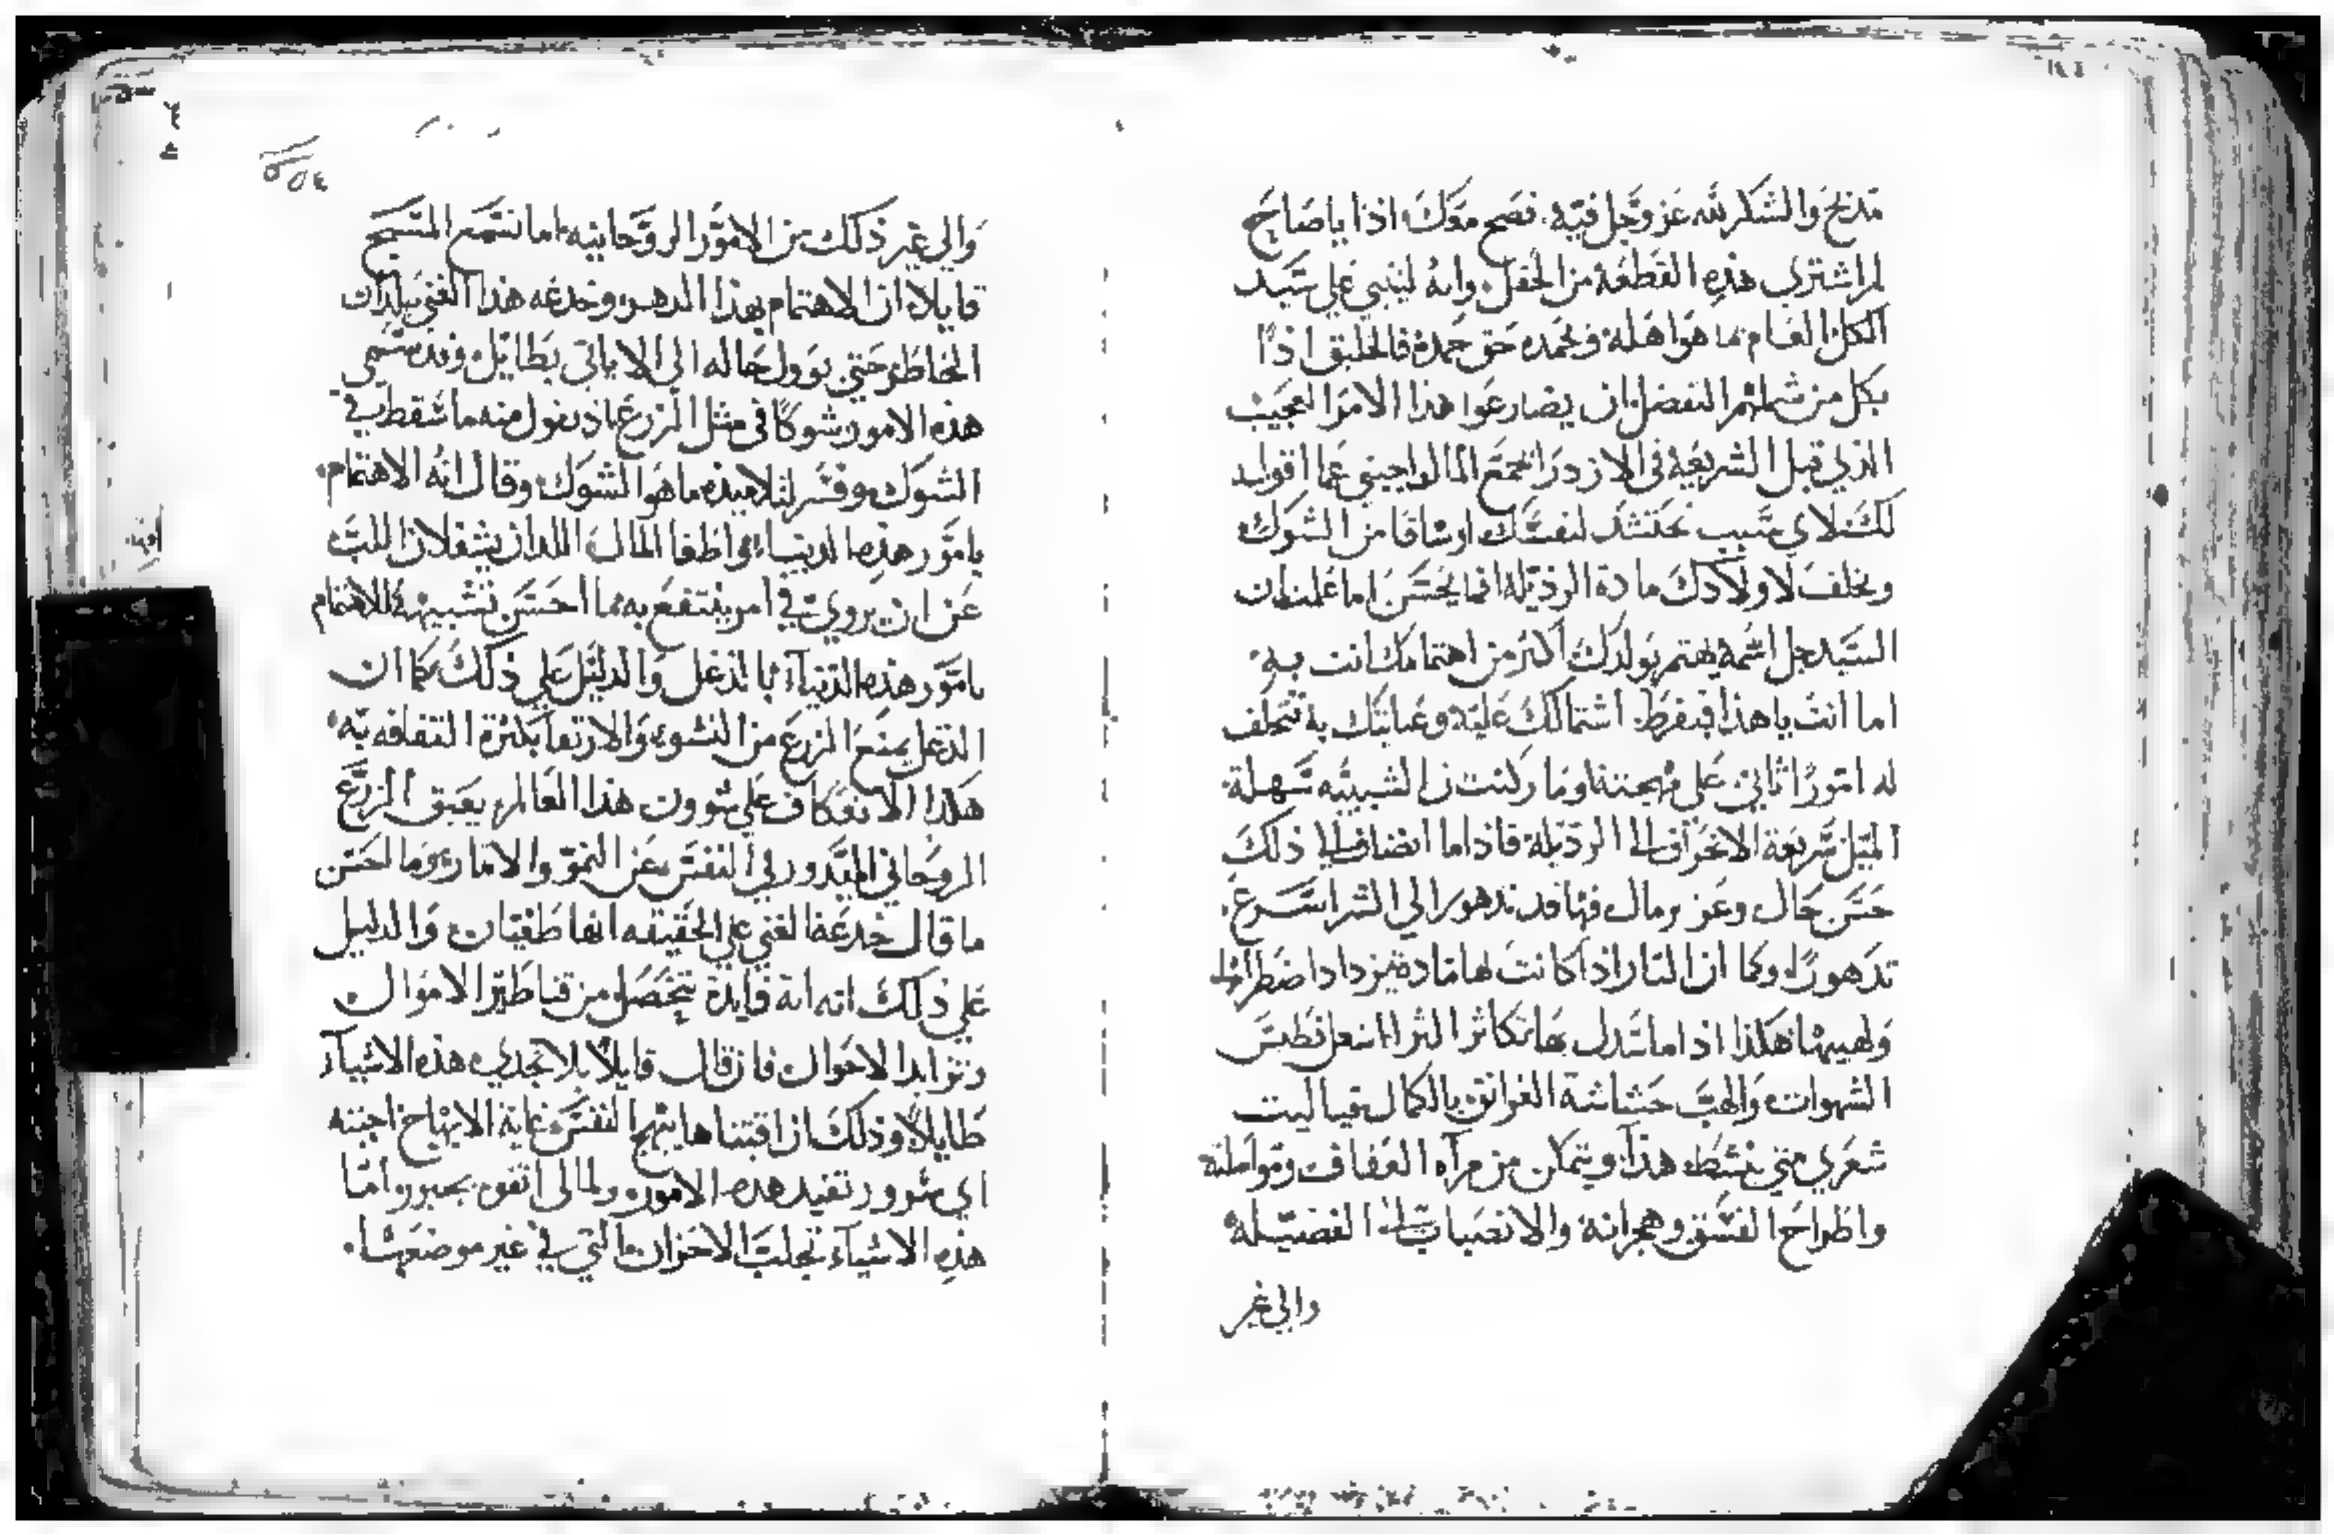 مديح والشكر لله عز وجل فيه. فصح معك اذا ياصاح
لم اشتري هذه القطعة من الحقل. وانه لينبغي علي سيد
الكل العام بما هو اهله ونحمده حق حمده فالخليق اذًا
بكل من شملهم التفضل ان يضارعوا هذا الامر العجيب
الذي قبل الشريعة في الازدرا بجمع المال اجبني عما اقوله
لك لاي سبب تحتشد لنفسك اوساقا من الشوك
وتخلف لاولادك مادة الرذيله افما يحسن اما علمت ان
السيد جل اسمه يهتم بولدك اكثر من اهتمامك انت به
اما انت يا هذا فبفرط اشتمالك عليه وعنايتك به تتخلف
له امورًا تاتي على مهجته وما ركنت ن الشبيبه سهلة
الميل سريعة الانحراف الى الرذيلة فاذا ما انضاف الى ذلك
حسن حال وعز ومال فهنا قد تدهور الي الشر اسرع
تدهورًا. وكما ان النار اذا كانت لها مادة يزداد اضطرامها
ولهيبها هكذا اذا ما تكاثر الثرا اشعل
الشهوات والهب حشاشة الغرانق بالكمال فيا ليت
شعري متي ينشط هذا ويتمكن من مرآه العفاف ومواصلته
واطراح الفسق وهجرانه والانصباب الى الفضيله
والي غير
٥٥٤
والي غير ذلك من الامور الروحانيه اما تسمع المسيح
قايلا ان الاهتمام بهذا الدهر وخدعه هذا الغني
الخاطر حتي يوول حاله الي الا ياتي بطايل وقد سمي
هذه الامور شوكا في مثل الزرع اذ يقول منه ما سقط في
الشوك وفسر لتلاميذه ما هو الشوك وقال انه الاهتمام
بامور هذه الدنيا واطغا المال اللذان يشغلان اللب
عن ان يروي في امر ينتفع به ما احسن تشبيهه للاهتمام
بامور هذه الدنيا بالدغل والدليل علي ذلك كما ان
الدغل يمنع الزرع من النشوء والارتفا بكثرة التفافه به
هكذا الانعكاف علي شوون هذا العالم يعيق الزرع
الروحاني المبدور في النفس عن النمو والاثمار وما احسن
ما قال خدعة الغني علي الحقيقه انها طغيان والدليل
علي ذلك انه اية فايدة تتحصل من قناطير الاموال
وتزايد الاحوال فان قال قايلا بلا تجدي هذه الاشيآ
طايلا وذلك ان اقتناها يبهج النفس غاية الابتهاج اجبته
اي سرور تفيد هذه الامور ولما لي اتفوه بسرور وانما
هذه الاشياء تجلب الاحزان التي في غير موضعها.